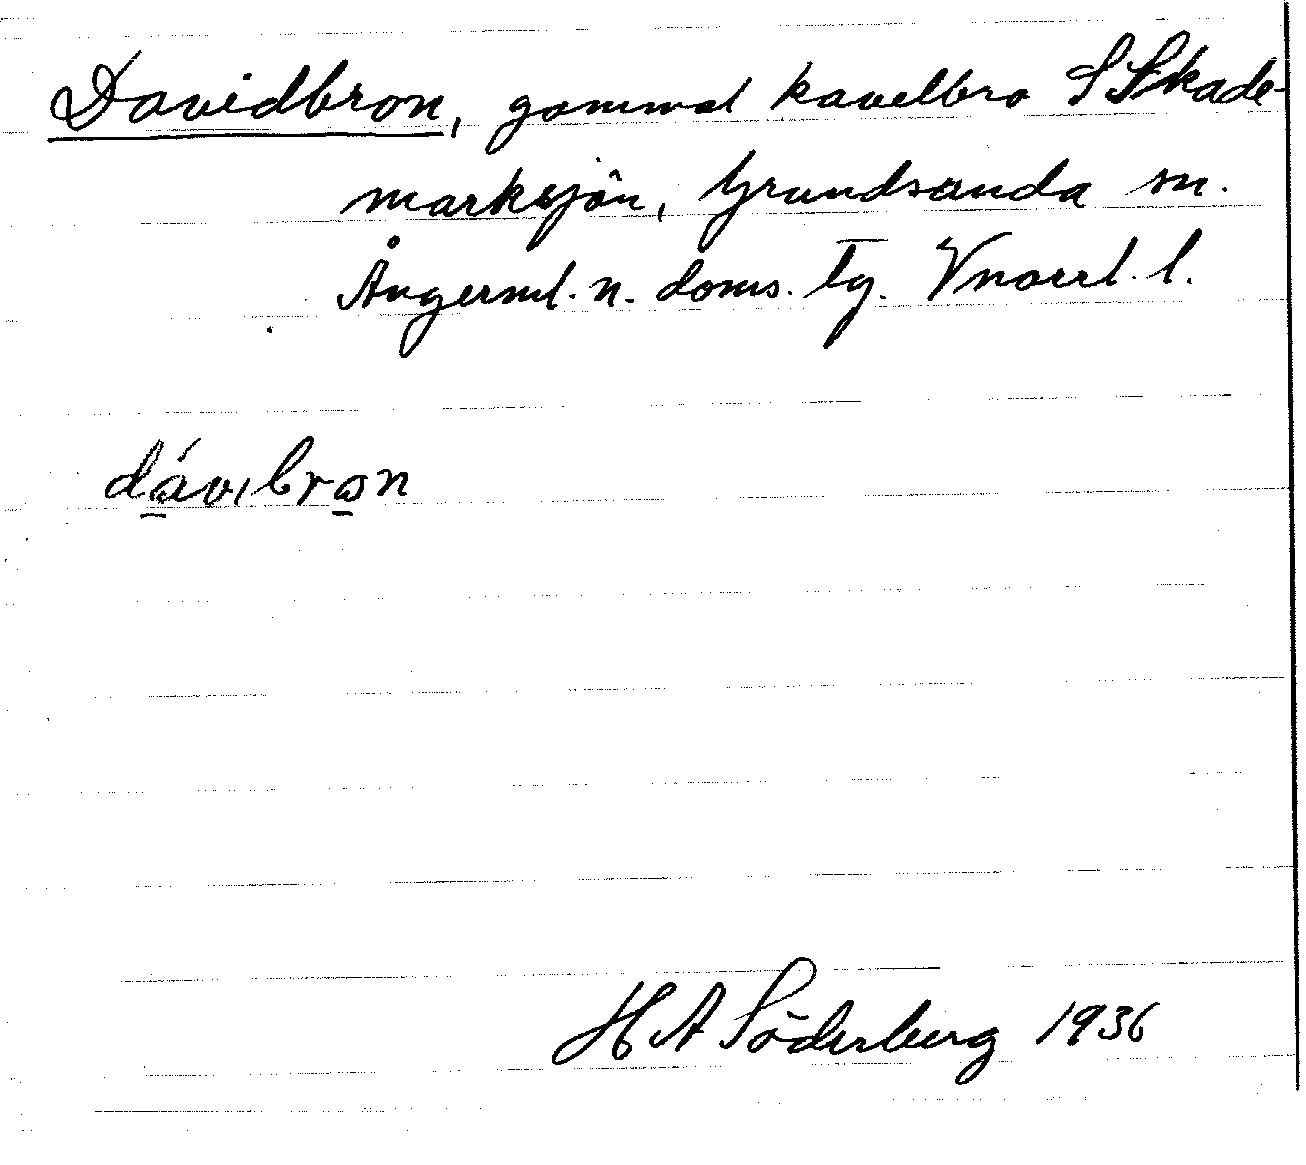 Davidbron, gammal kavelbro S Skade-
marksjön, Grundsunda sn.
Ångerml. n. doms. tg. Vnorrl. l.
dávıbron
H A Söderberg 1936